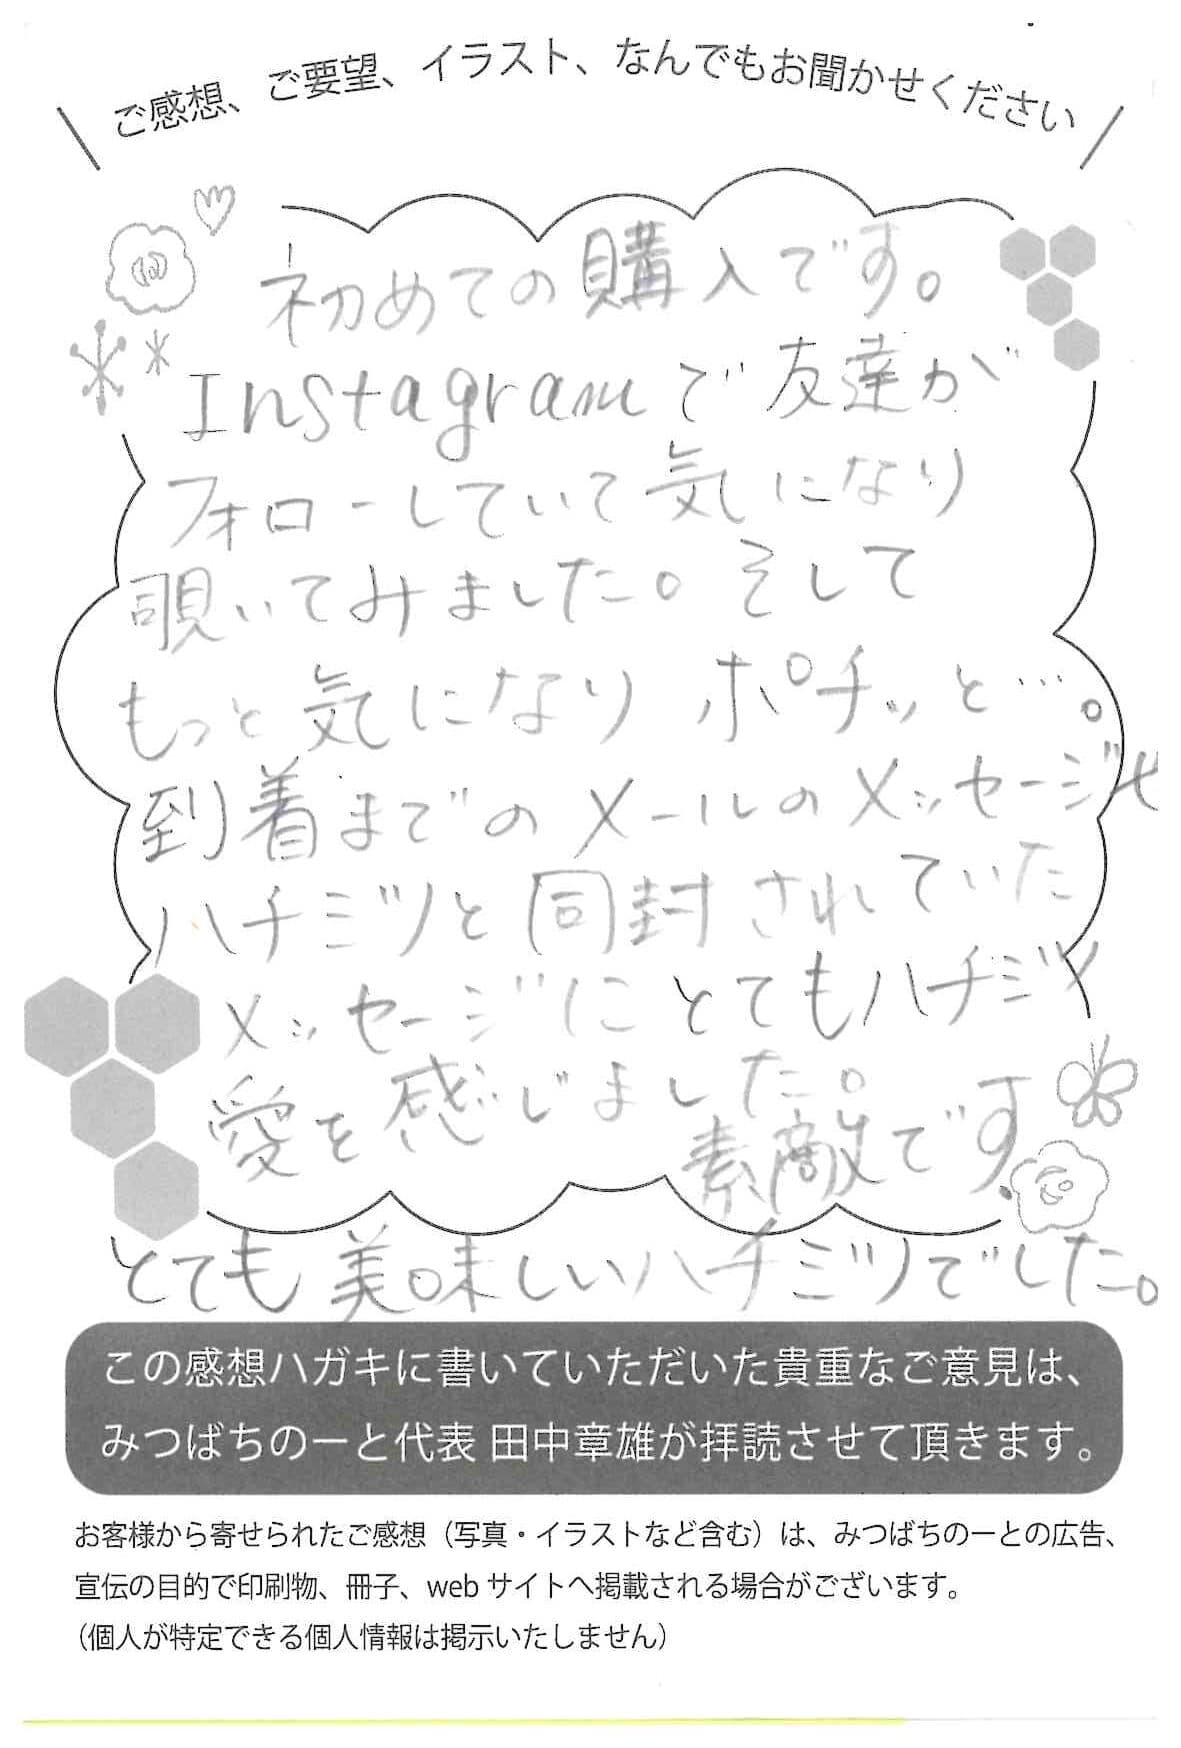 ご感想、ご要望、イラスト、なんでもお聞かせください
初めての購入です。
Instagramで友達が
フォローしていて気になり
覗いてみました。そして
もっと気になり ポチッと…。
到着までのメールのメッセージも
ハチミツと同封されていた
メッセージにとてもハチミツ
愛を感じました。
素敵です.
とても美味しいハチミツでした。
この感想ハガキに書いていただいた貴重なご意見は、
みつばちのーと代表 田中章雄が拝読させて頂きます。
お客様から寄せられたご感想（写真・イラストなど含む）は、みつばちのーとの広告、
宣伝の目的で印刷物、冊子、webサイトへ掲載される場合がございます。
（個人が特定できる個人情報は掲示いたしません）